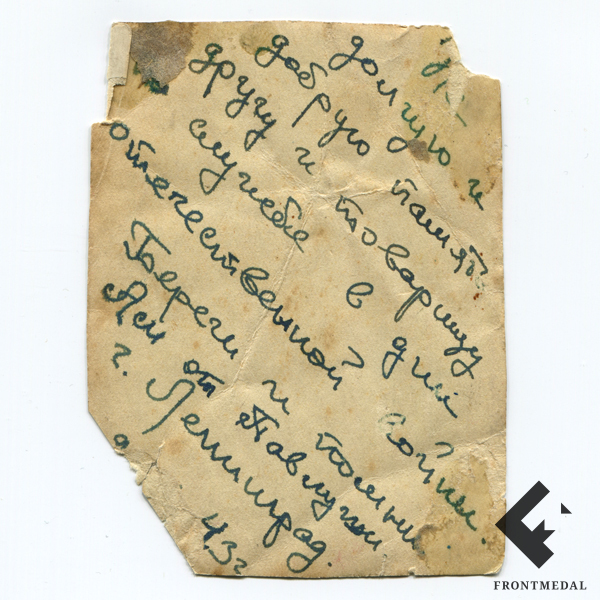 долгую и
добрую память
другу и товарищу
службе в дни
отечественной войны.
Береги и помни.
от Павлуши.
г. Ленинград.
43г
FRONTMEDAL